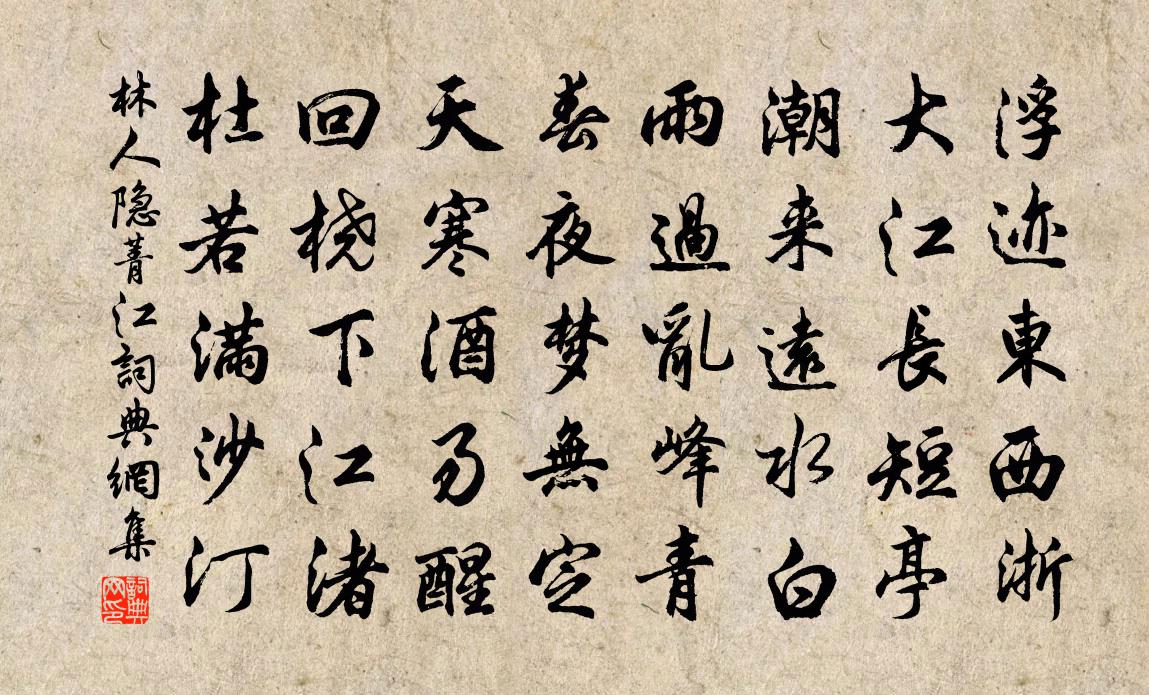 浮迹東西浙
大江長短亭
潮来遠水白
雨過亂峰青
春夜梦無定
天寒酒易醒
回桡下江渚
杜若滿沙汀
林人隐菁江詞典網集
詞典网印